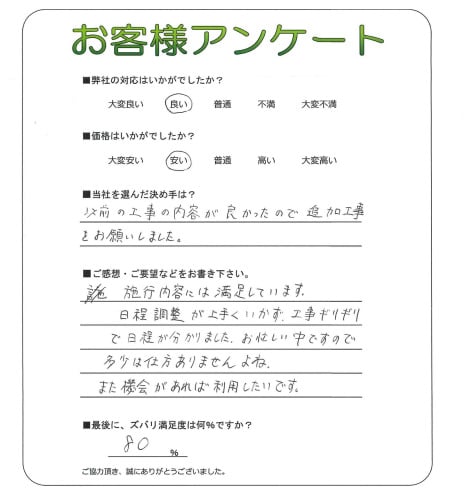 お客様アンケート
■弊社の対応はいかがでしたか？
大変良い 良い 普通 不満 大変不満
■価格はいかがでしたか？
大変安い 安い 普通 高い 大変高い
■当社を選んだ決め手は？
以前の工事の内容が良かったので追加工事
をお願いしました。
■ご感想・ご要望などをお書き下さい。
施行内容には満足しています。
日程調整が上手くいかず、工事ギリギリ
で日程が分かりました。お忙しい中ですので
多少は仕方ありませんよね。
また機会があれば利用したいです。
■最後に、ズバリ満足度は何％ですか？
80 %
ご協力頂き、誠にありがとうございました。